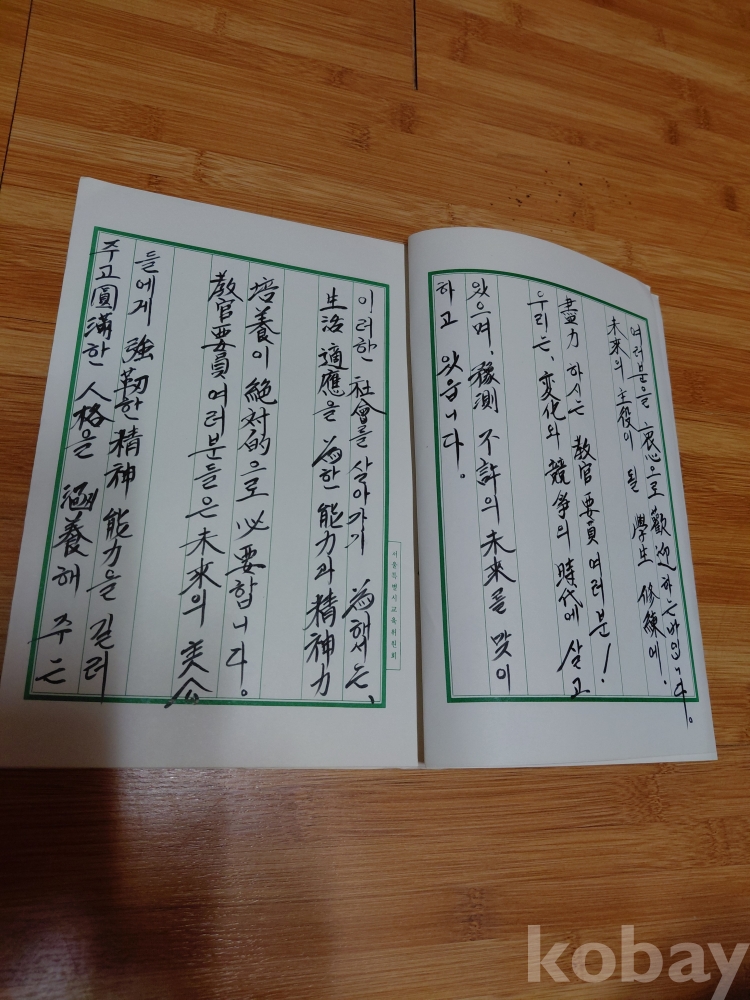 여러분을 衷心으로 歡迎하는바입니다。
未來의 主役이 될 學生 修練에,
盡力 하시는 敎官要員 여러분!
우리는, 変化와 競爭의 時代에 살고
있으며, 豫測 不許의 未來를 맞이
하고 있습니다。
이러한 社會를 살아가기 為해서는,
生活 適應을 為한 能力과 精神力
培養이 絶対的으로 必要합니다。
敎官要員 여러분들은 未來의 主人公
들에게 強靭한 精神 能力을 길러
주고 圓滿한 人格을 涵養해 주는
서울특별시교육위원회
kobay